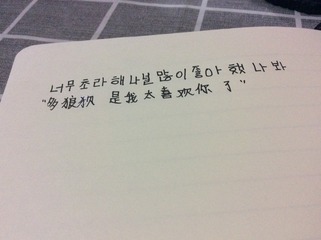 너무 초라해 나 널 많이 좋아 했 나 봐
"够狼狈 是我太喜欢你了"